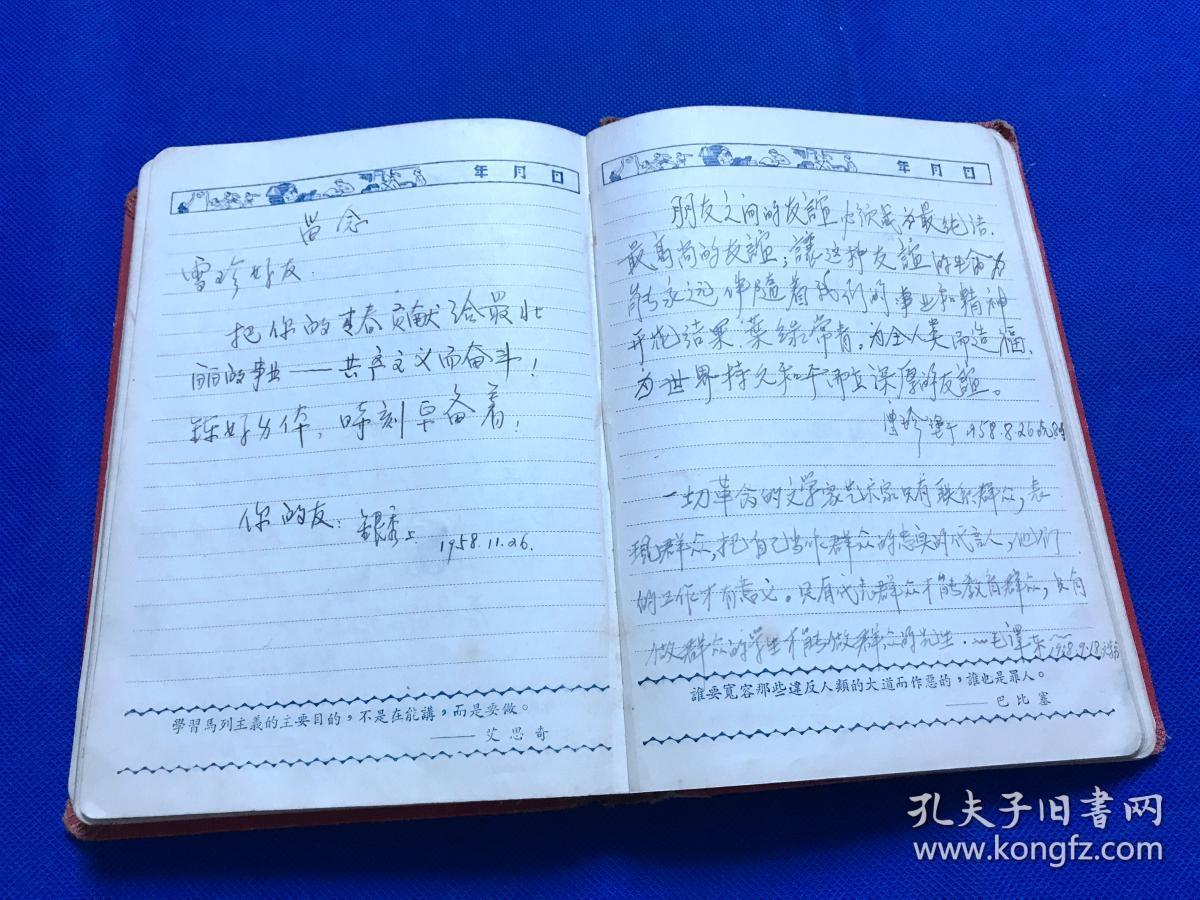 年 月 日
留念
雪珍好友:
把你的青春贡献给最壮
丽的事业——共产主义而奋斗!
锻好身体,時刻早备着!
你的友:銀秀上
1958.11.26.
學習馬列主義的主要目的,不是在能講,而是要做。
——艾思奇
年 月 日
朋友之间的友誼 成为最纯洁、
最高尚的友誼;讓这种友誼的生命力
能永远伴隨着我们的事业和精神
开花结果 葉緑常青,为全人类而造福,
为世界持久和平而 深厚的友誼。
雪珍 1958.8.26
一切革命的文学家艺术家只有联系群众,表
现群众,把自己当作群众的忠实的代言人,他们
的工作才有意义。只有代表群众才能教育群众,只有
做群众的学生才能做群众的先生.——毛澤东
誰要寬容那些違反人類的大道而作惡的,誰也是罪人。
——巴比塞
孔夫子旧書网
www.kongfz.com